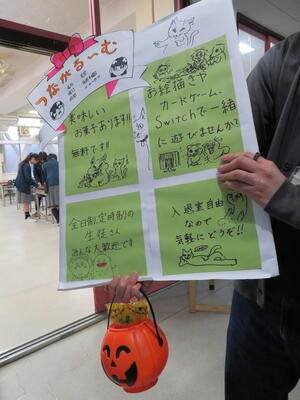 つながるーむ
美味しい
お菓子あります!!
無料です!!
お絵描きや
カードゲーム・
Switchで一緒
に遊びませんか?
全日制、定時制の
生徒さん
みんな大歓迎です
入退室自由
なので
気軽にどうぞ!!